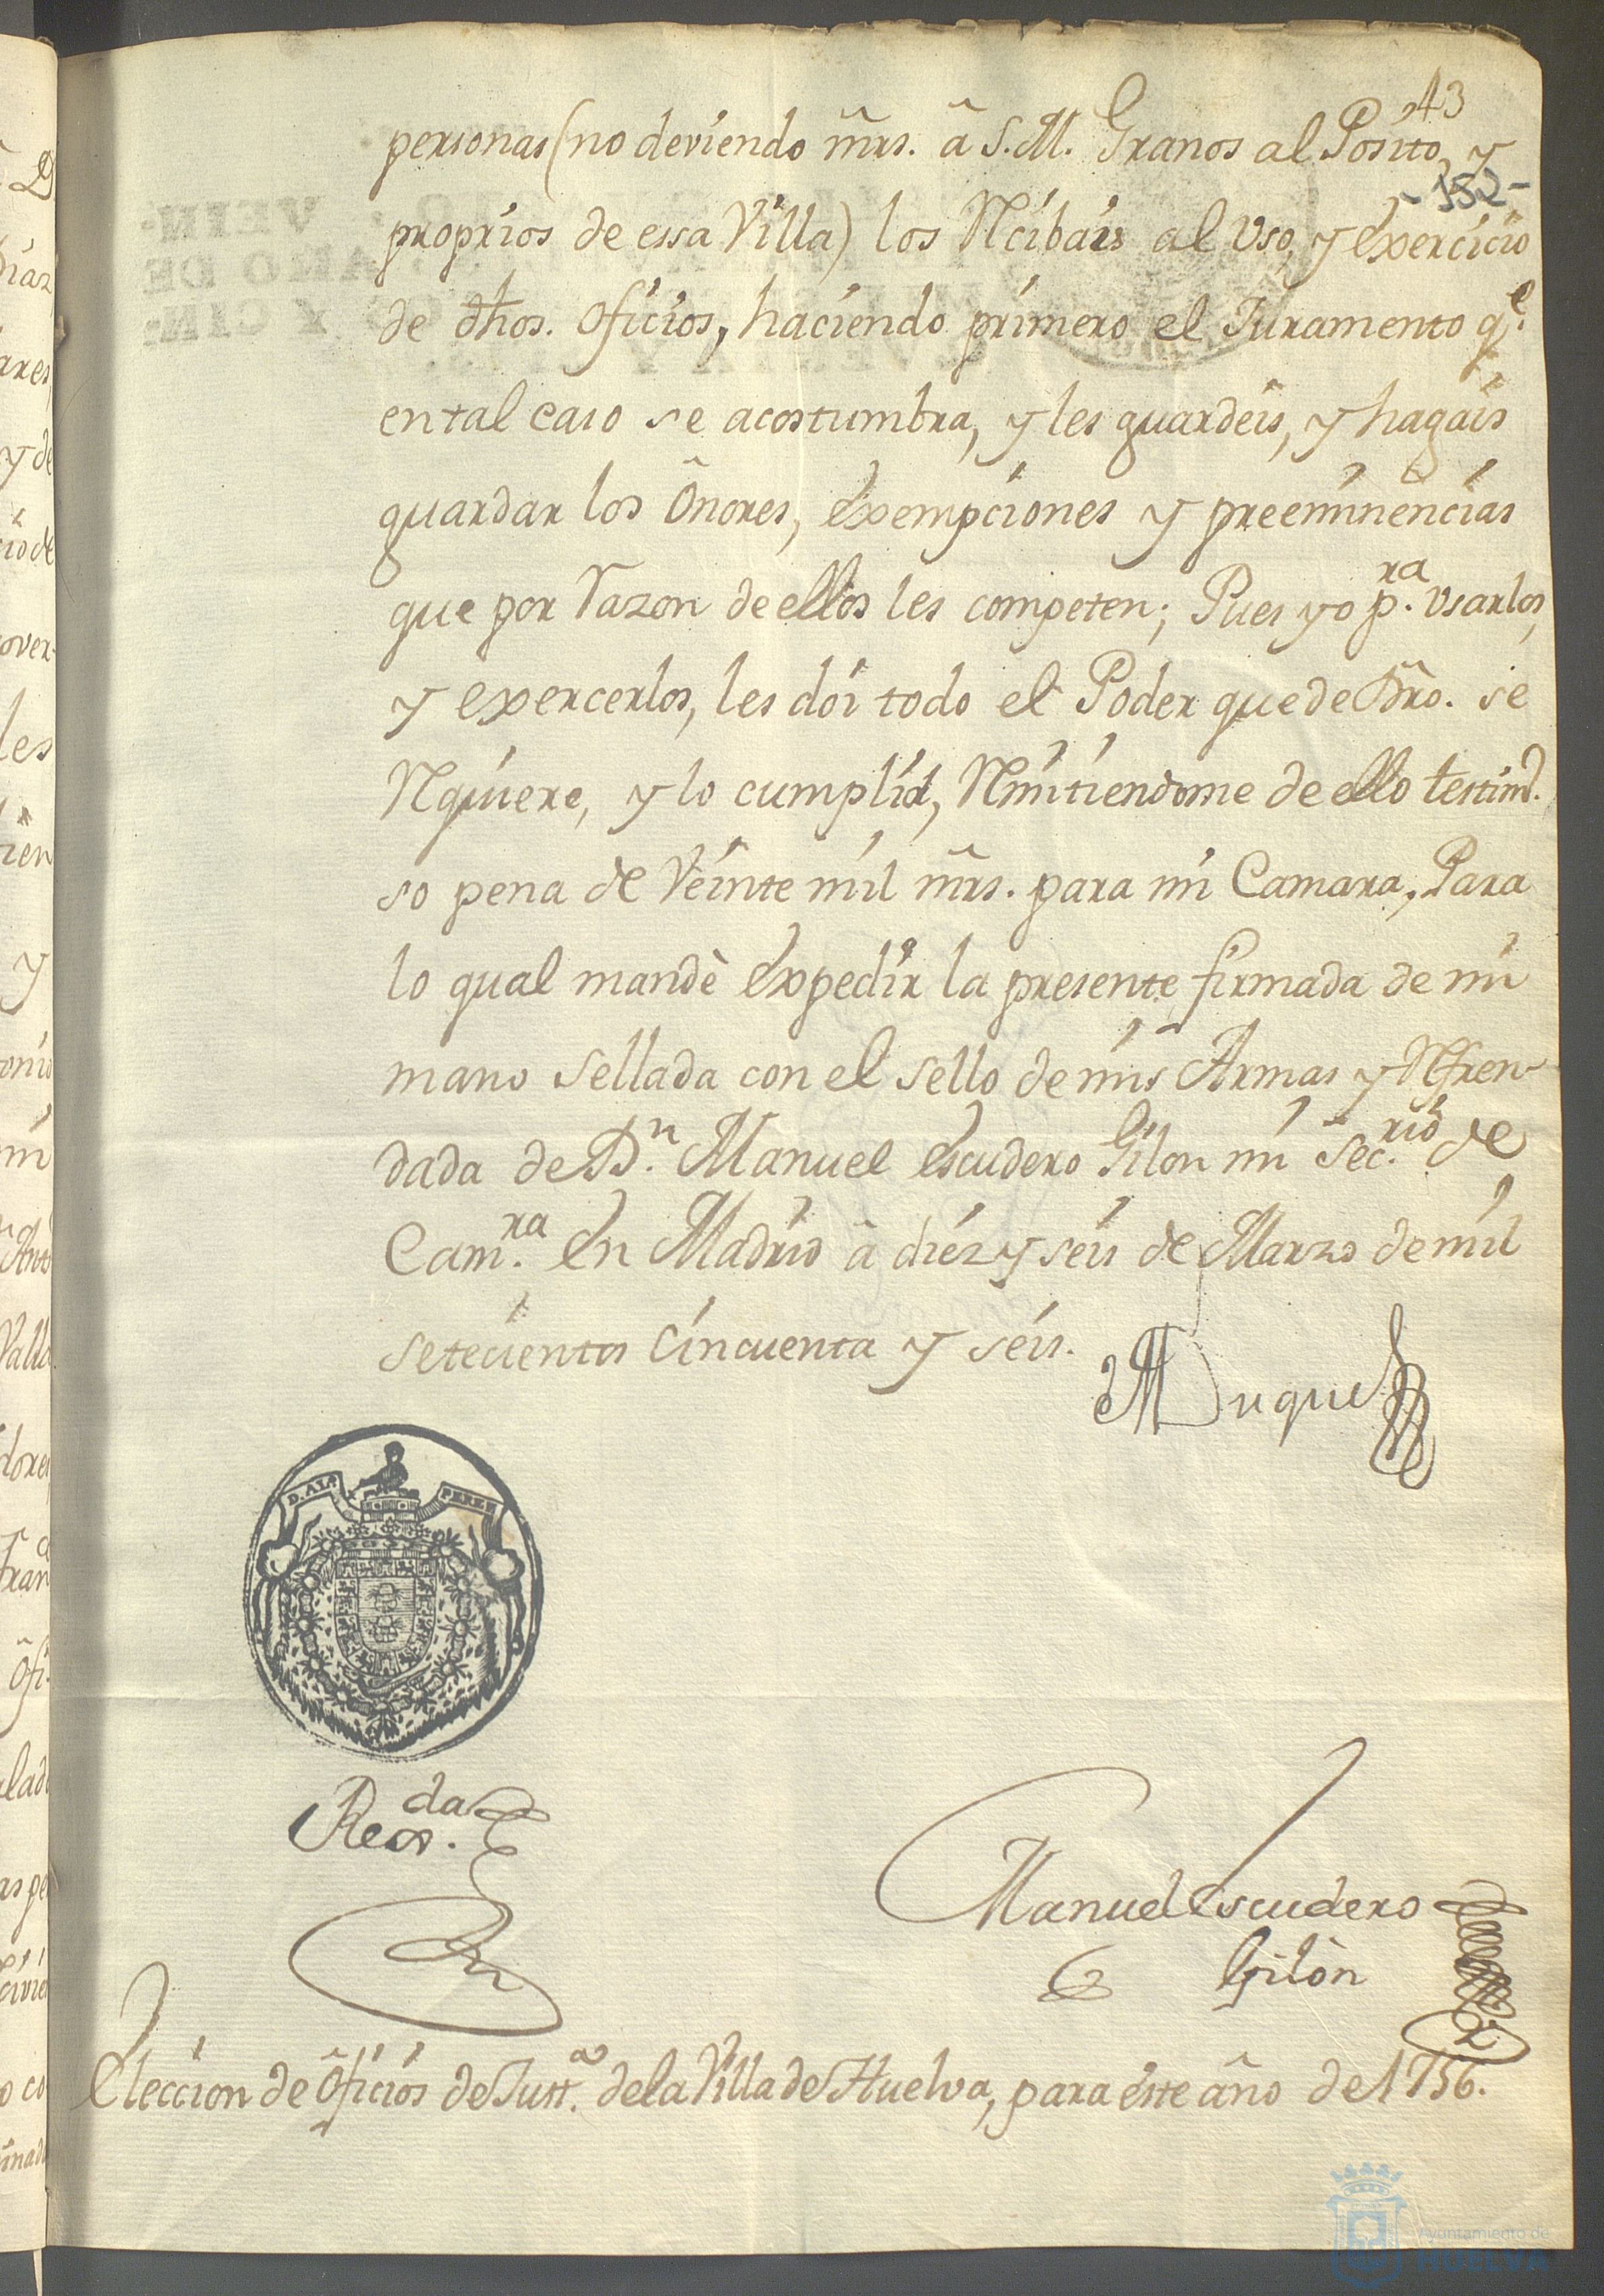 43
personas (no deviendo m̃rs. â S.M. Granos al Posito, y
-152-
proprios de essa Villa) los Rcibais al Uso, y exercicio
de dhos. Oficios, haciendo primero el Juramento q.e
en tal caso se acostumbra, y les guardeis, y hagais
guardar los Onores, exempciones y preeminencias
que por Razon de ellos les competen; Pues yo p.ra Usarlos,
y exercerlos, les doi todo el Poder que de Dr̃o. se
Rquiere, y lo cumplid, Rmitiendome de ello testim.o
so pena de Veinte mil m̃rs. para mi Camara, Para
lo qual mandè expedir la presente firmada de mi
mano sellada con el sello de mis Armas y Rfren-
dada de D.n Manuel Escudero Gilon mi Sec.rio de
Cam.ra En Madrid â diez y seis de Marzo de mil
setecientos Cinquenta y seis.
El Duque
D. ALº PEREZ
Reg.da
Manuel Escudero
Gilòn
Eleccion de Oficios de Just.a de la Villa de Huelva, para este año de 1756.
Ayuntamiento de
HUELVA